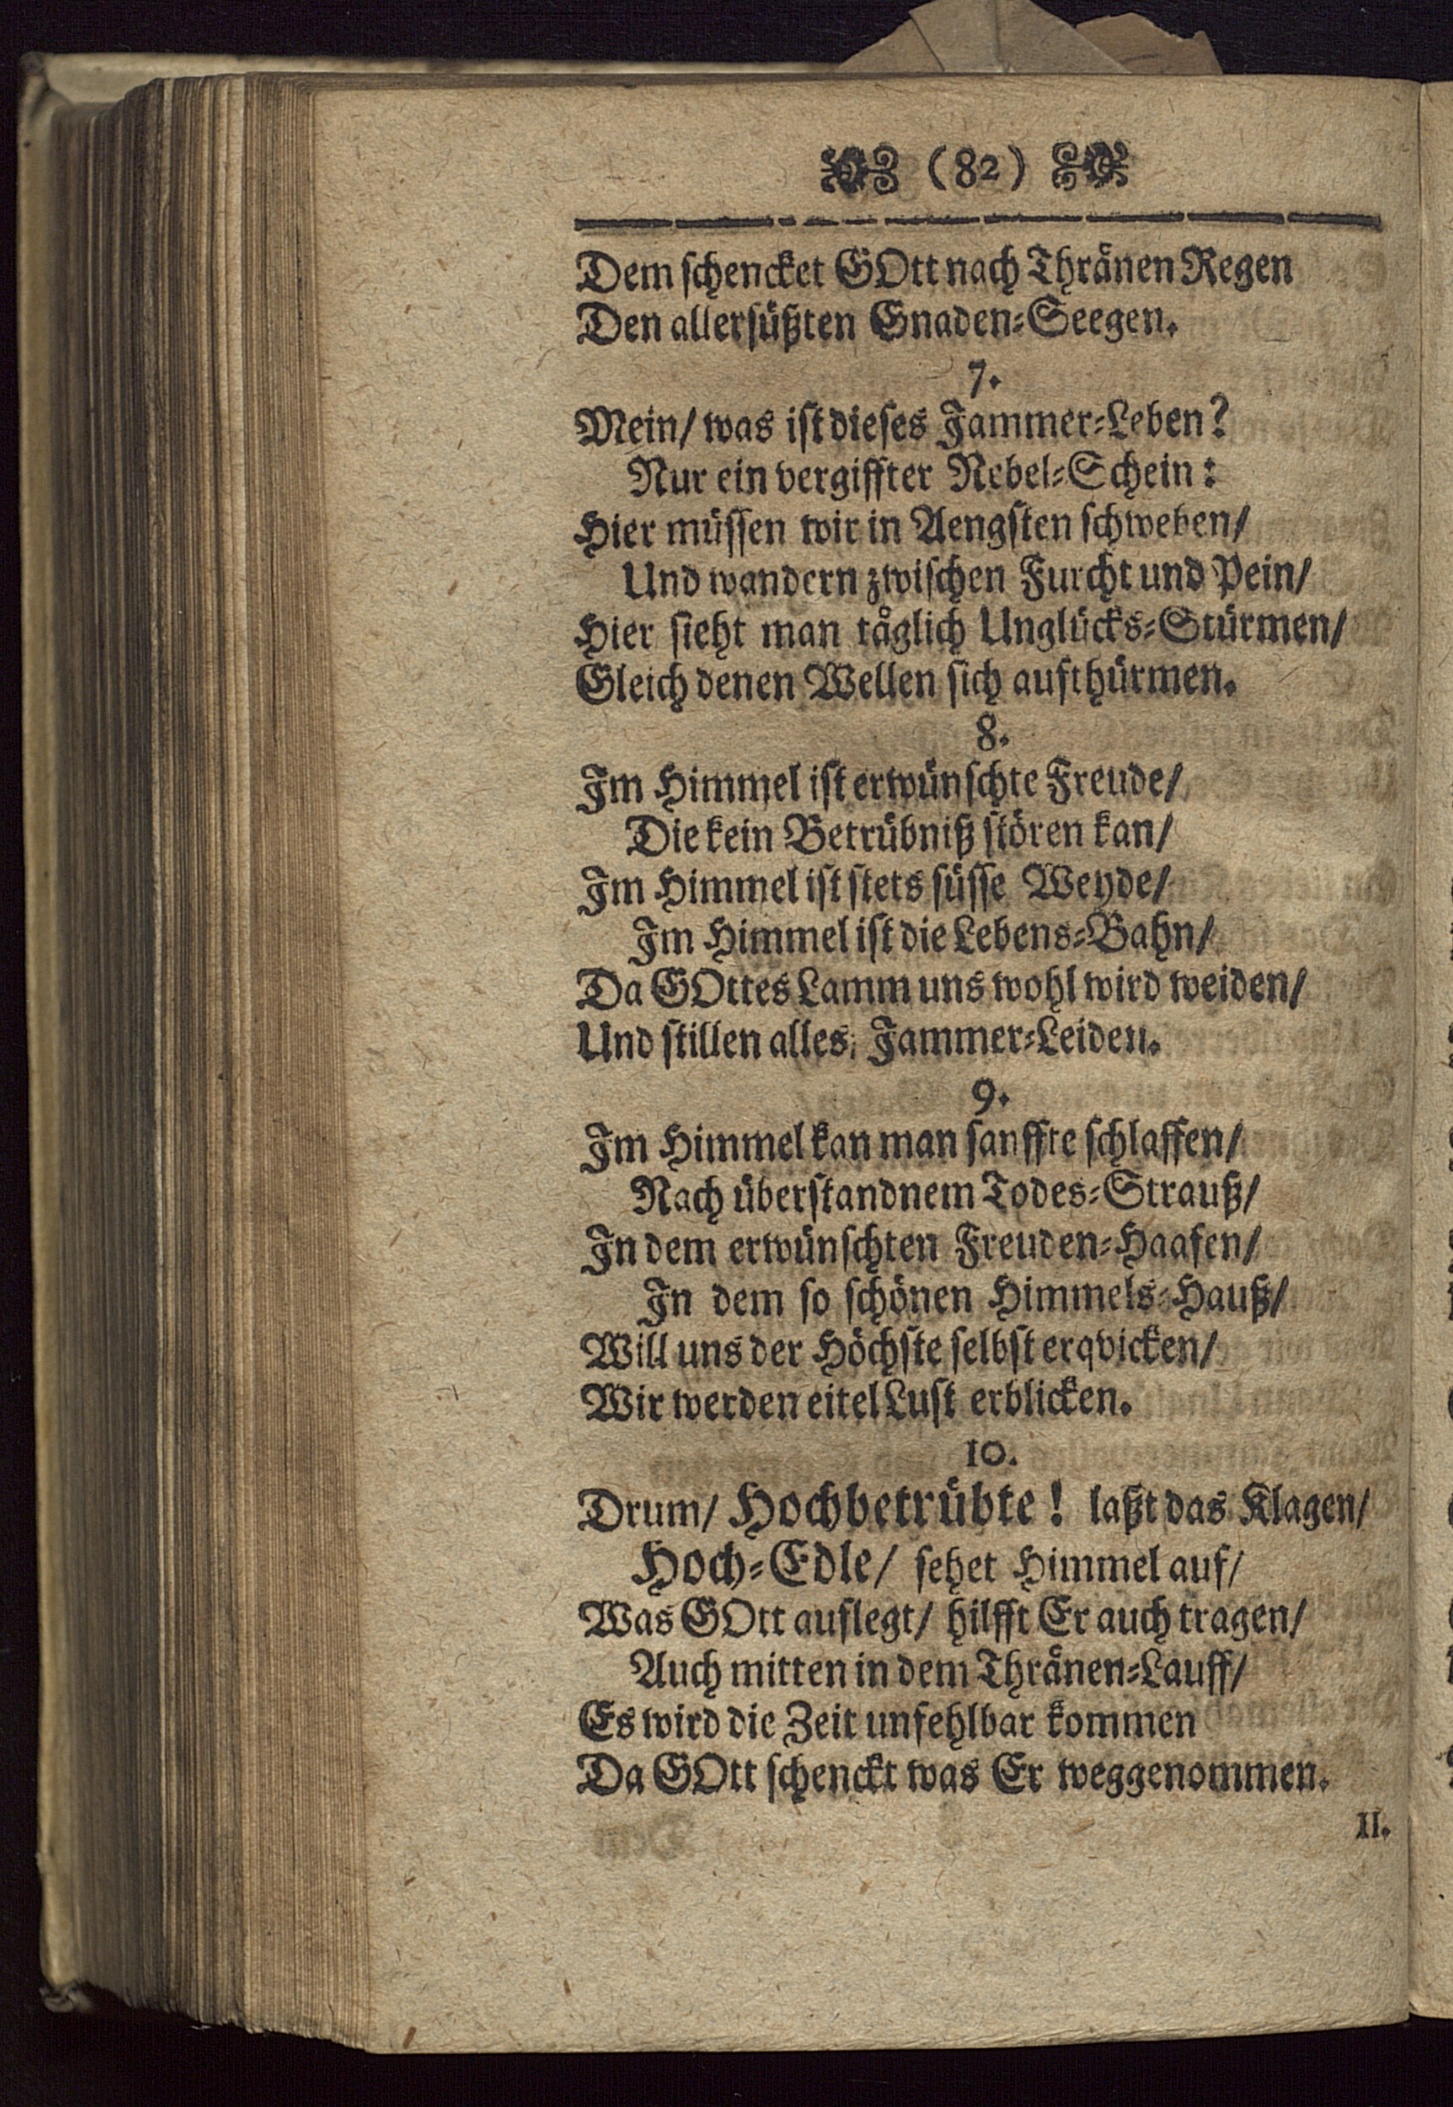 (82)
Dem schencket GOtt nach Thränen Regen
Den allersüßten Gnaden-Seegen.
7.
Mein/ was ist dieses Jammer-Leben?
Nur ein vergiffter Nebel-Schein:
Hier müssen wir in Aengsten schweben/
Und wandern zwischen Furcht und Pein/
Hier sieht man täglich Unglücks-Stürmen/
Gleich denen Wellen sich aufthürmen.
8.
Im Himmel ist erwünschte Freude/
Die kein Betrübniß stören kan/
Im Himmel ist stets süsse Weyde/
Im Himmel ist die Lebens-Bahn/
Da GOttes Lamm uns wohl wird weiden/
Und stillen alles, Jammer-Leiden.
9.
Im Himmel kan man sanffte schlaffen/
Nach überstandnem Todes-Strauß/
In dem erwünschten Freuden-Haafen/
In dem so schönen Himmels-Hauß/
Will uns der Höchste selbst erqvicken/
Wir werden eitel Lust erblicken.
10.
Drum/ Hochbetrübte! laßt das Klagen/
Hoch-Edle/ sehet Himmel auf/
Was GOtt auflegt/ hilfft Er auch tragen/
Auch mitten in dem Thränen-Lauff/
Es wird die Zeit unfehlbar kommen
Da GOtt schenckt was Er weggenommen.
11.